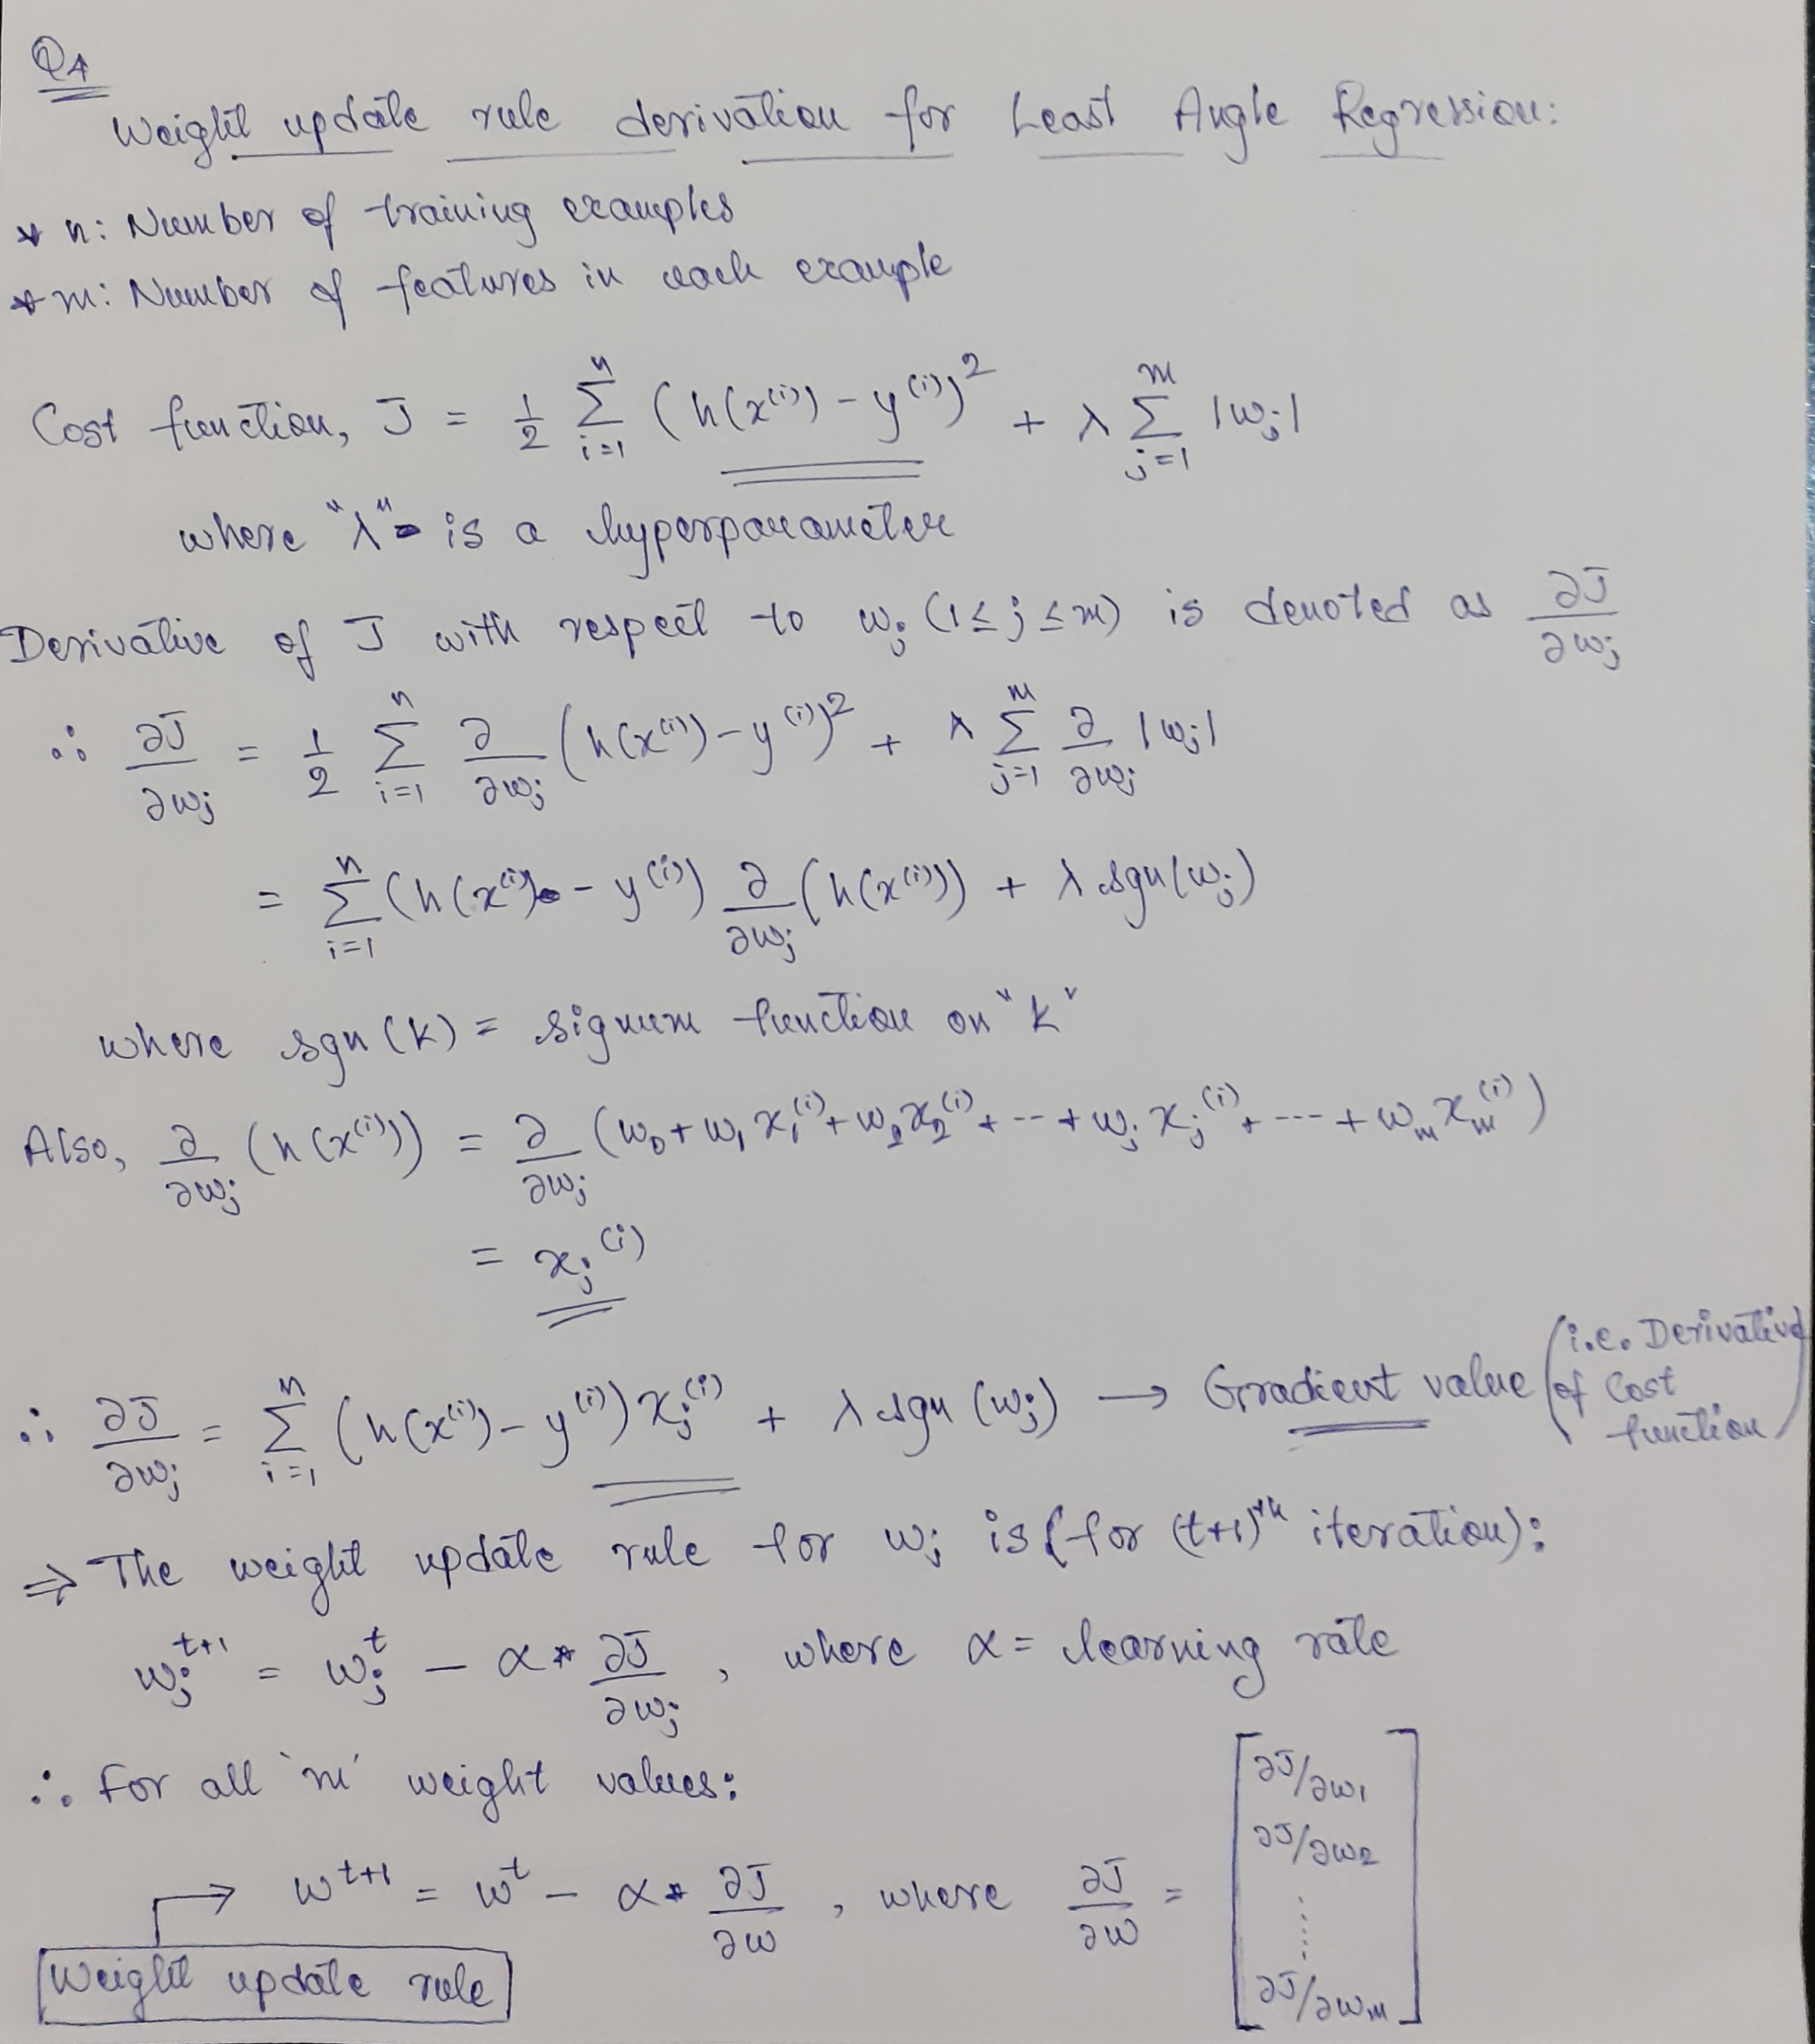 Q4
Weight update rule derivation for Least Angle Regression:
* n: Number of training examples
* m: Number of features in each example
Cost function, J = 1/2 Σ_{i=1}^{n} (h(x^(i)) - y^(i))^2 + λ Σ_{j=1}^{m} |w_j|
where "λ" is a hyperparameter
Derivative of J with respect to w_j (1 ≤ j ≤ m) is denoted as ∂J/∂w_j
∴ ∂J/∂w_j = 1/2 Σ_{i=1}^{n} ∂/∂w_j (h(x^(i)) - y^(i))^2 + λ Σ_{j=1}^{m} ∂/∂w_j |w_j|
= Σ_{i=1}^{n} (h(x^(i)) - y^(i)) ∂/∂w_j (h(x^(i))) + λ sgn(w_j)
where sgn(k) = signum function on "k"
Also, ∂/∂w_j (h(x^(i))) = ∂/∂w_j (w_0 + w_1 x_1^(i) + w_2 x_2^(i) + --- + w_j x_j^(i) + --- + w_m x_m^(i))
= x_j^(i)
∴ ∂J/∂w_j = Σ_{i=1}^{n} (h(x^(i)) - y^(i)) x_j^(i) + λ sgn(w_j) → Gradient value (i.e. Derivative of Cost function)
⇒ The weight update rule for w_j is (for (t+1)^th iteration):
w_j^{t+1} = w_j^t - α * ∂J/∂w_j , where α = learning rate
∴ For all 'm' weight values:
→ w^{t+1} = w^t - α * ∂J/∂w , where ∂J/∂w = [∂J/∂w_1 ∂J/∂w_2 ⋮ ∂J/∂w_m]
Weight update rule